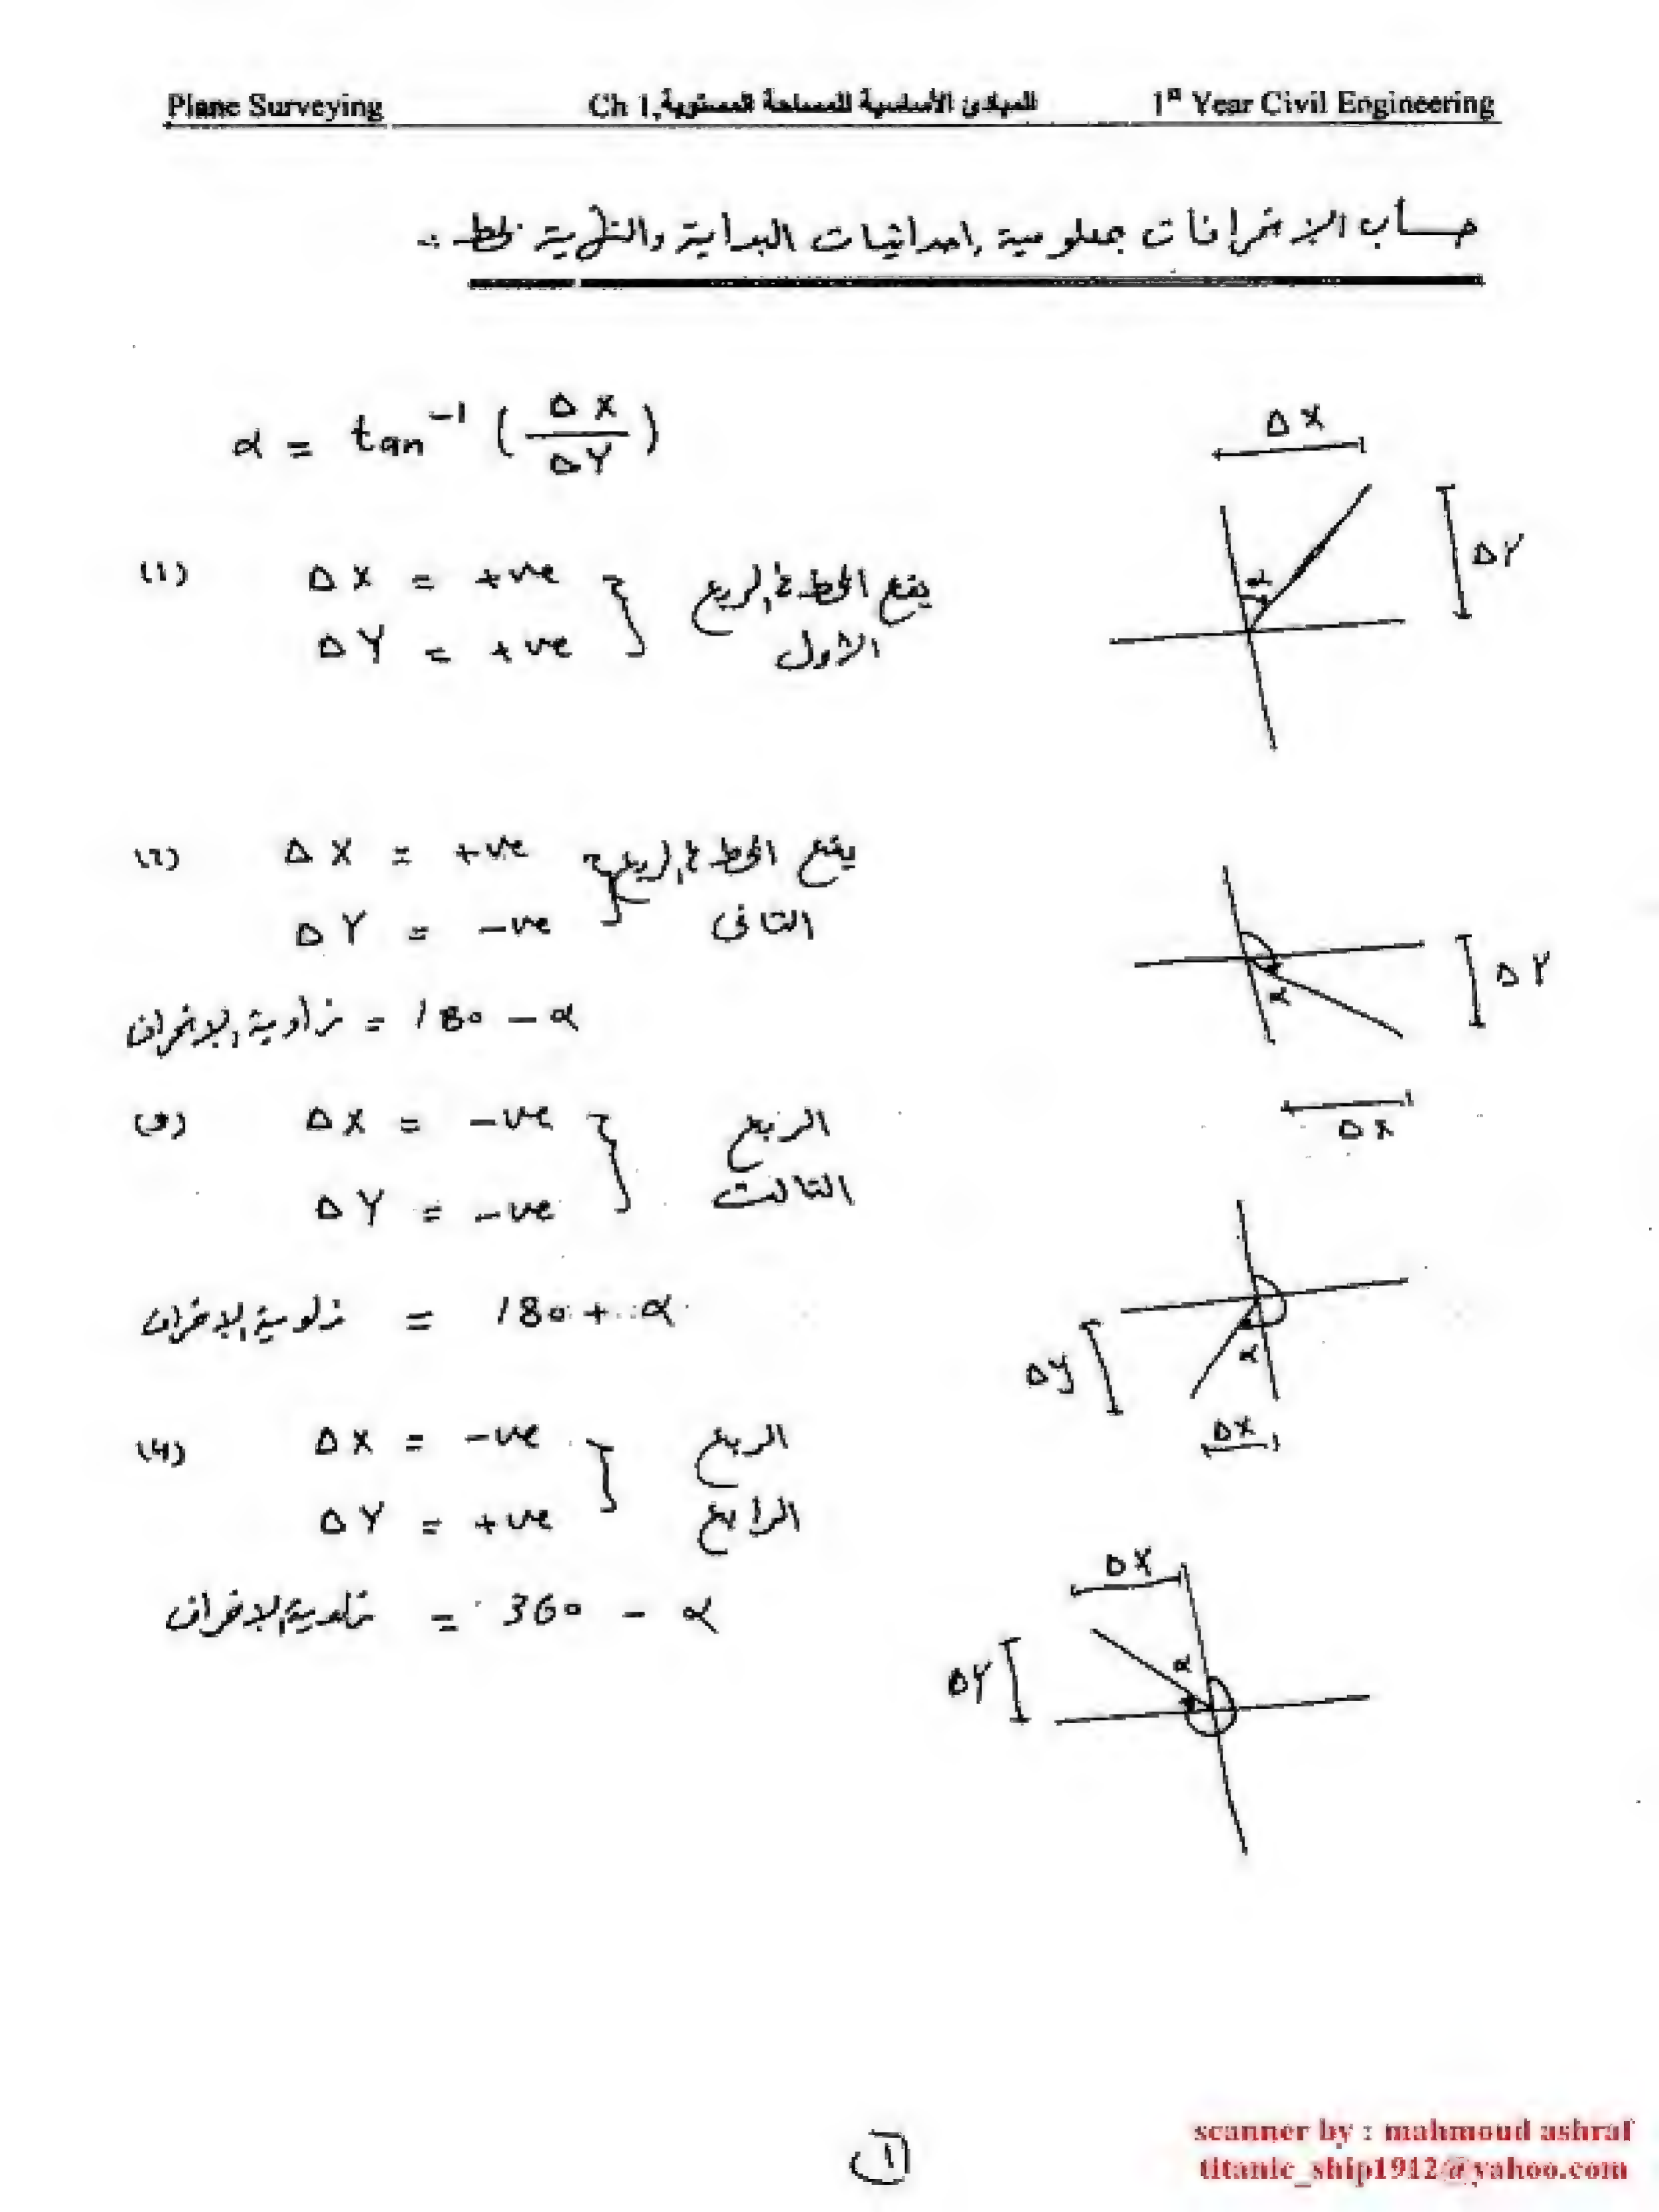 Plane Surveying Ch 1, المبادئ الأساسية للمساحة المستوية 1st Year Civil Engineering
حساب الانحرافات بمعلومية إحداثيات البداية والنهاية لخط :-
α = tan⁻¹ (ΔX / ΔY)
ΔX
ΔY
α
(1) ΔX = +ve } يقع الخط فى الربع
ΔY = +ve الأول
(2) ΔX = +ve } يقع الخط فى الربع
ΔY = -ve الثانى
زاوية الانحراف = 180 - α
ΔY
α
ΔX
(3) ΔX = -ve } الربع
ΔY = -ve الثالث
زاوية الانحراف = 180 + α
ΔY
α
ΔX
(4) ΔX = -ve } الربع
ΔY = +ve الرابع
زاوية الانحراف = 360 - α
ΔX
α
ΔY
١
scanner by : mahmoud ashraf
titanic_ship1912@yahoo.com